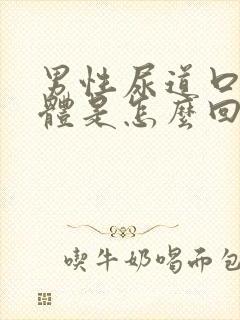 男性尿道口
體是怎麼回
喫牛奶喝面包